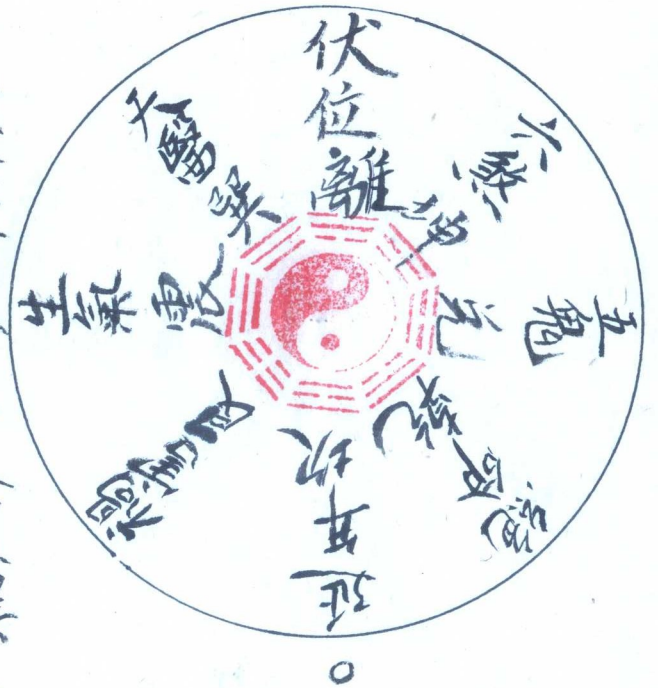 伏位
離
六煞
坤
五鬼
兌
絕命
乾
延年
坎
禍害
艮
生氣
震
天醫
巽